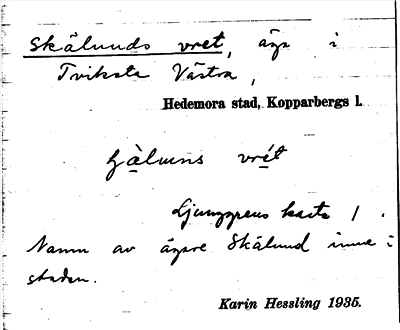 Skälunds vret, ägo i
Tviksta Västra,
Hedemora stad, Kopparbergs l.
vrét
Ljunggrens karta 1.
Namn av ägare Skälund inne i
staden.
Karin Hessling 1935.